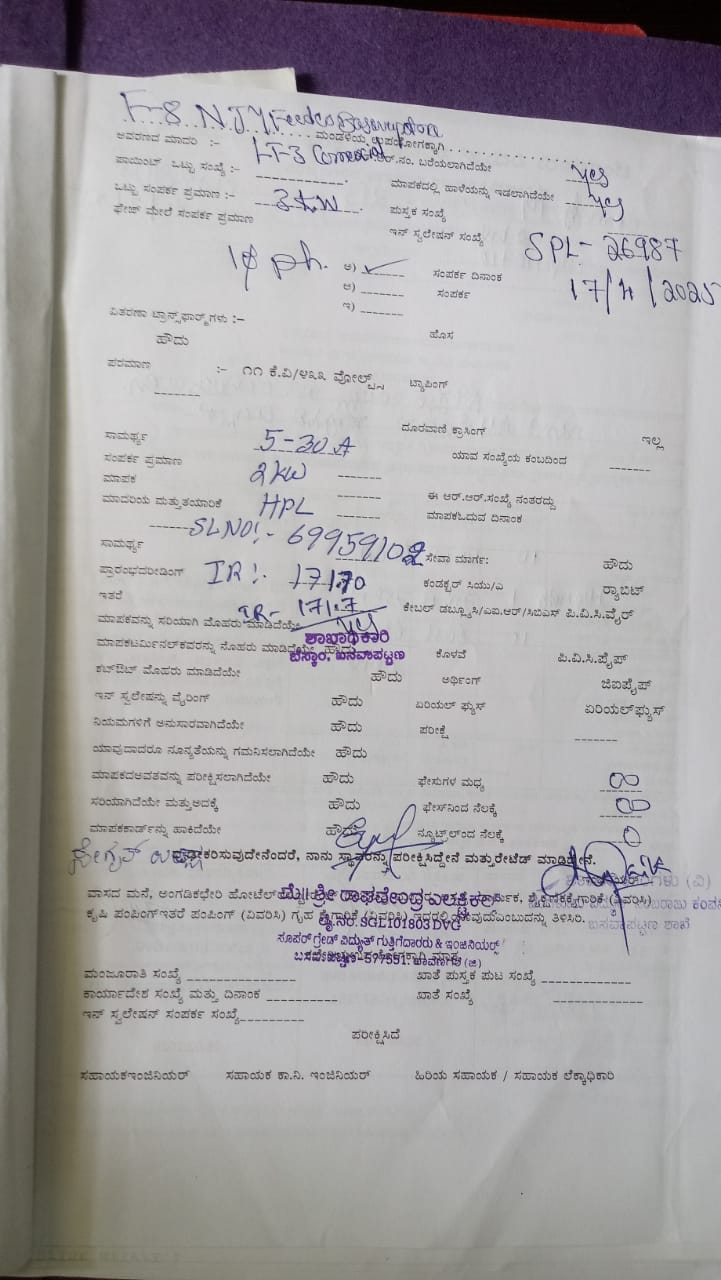 F-8 NJY Feeder Basavapatna
ಮಂಡಳಿಯ ಉಪಯೋಗಕ್ಕಾಗಿ
ಆವರಣದ ಮಾದರಿ :- LT-3 Comercial ಆರ್.ನಂ. ಬರೆಯಲಾಗಿದೆಯೇ yes
ಪಾಯಿಂಟ್ ಒಟ್ಟು ಸಂಖ್ಯೆ :- ಮಾಪಕದಲ್ಲಿ ಹಾಳೆಯನ್ನು ಇಡಲಾಗಿದೆಯೇ yes
ಒಟ್ಟು ಸಂಪರ್ಕ ಪ್ರಮಾಣ :- 3 KW ಪುಸ್ತಕ ಸಂಖ್ಯೆ
ಫೇಜ್ ಮೇಲೆ ಸಂಪರ್ಕ ಪ್ರಮಾಣ ಇನ್ ಸ್ವಲೇಷನ್ ಸಂಖ್ಯೆ SPL- 26987
1φ ph. ಅ) ✓ ಸಂಪರ್ಕ ದಿನಾಂಕ 17/4/2025
ಆ) ಸಂಪರ್ಕ
ಇ)
ವಿತರಣಾ ಟ್ರಾನ್ಸ್‌ಫಾರ್ಮ್‌ಗಳು :- ಹೊಸ
ಹೌದು
ಪರಮಾಣ :- ೧೧ ಕೆ.ವಿ/೪೩೩ ವೋಲ್ಟ್ಸ್ ಟ್ಯಾಪಿಂಗ್
ದೂರವಾಣಿ ಕ್ರಾಸಿಂಗ್ ಇಲ್ಲ
ಸಾಮರ್ಥ್ಯ 5-30 A ಯಾವ ಸಂಖ್ಯೆಯ ಕಂಬದಿಂದ
ಸಂಪರ್ಕ ಪ್ರಮಾಣ 2 KW
ಮಾಪಕ ಈ ಆರ್.ಆರ್.ಸಂಖ್ಯೆ ನಂತರದ್ದು
ಮಾದರಿಯ ಮತ್ತುತಯಾರಿಕೆ HPL ಮಾಪಕಓದುವ ದಿನಾಂಕ
SLNO:- 69959102
ಸಾಮರ್ಥ್ಯ ಸೇವಾ ಮಾರ್ಗ: ಹೌದು
ಪ್ರಾರಂಭದರೀಡಿಂಗ್ IR:- 17170 ಕಂಡಕ್ಟರ್ ಸಿಯು/ಎ ರ‍್ಯಾಬಿಟ್
ಇತರೆ IR- 171.7 ಕೇಬಲ್ ಡಬ್ಲ್ಯೂಸಿ/ಎಐ.ಆರ್/ಸಿಬಿಎಸ್ ಪಿ.ವಿ.ಸಿ.ವೈರ್
ಮಾಪಕವನ್ನು ಸರಿಯಾಗಿ ಮೊಹರು ಮಾಡಿದೆಯೇ yes
ಶಾಖಾಧಿಕಾರಿ
ಬೆಸ್ಕಾಂ, ಬಸವಾಪಟ್ಟಣ
ಮಾಪಕಟರ್ಮಿನಲ್‌ಕವರನ್ನು ನೊಹರು ಮಾಡಿದೆಯೇ ಹೌದು ಕೊಳವೆ ಪಿ.ವಿ.ಸಿ.ಪೈಪ್
ಕಟ್‌ಔಟ್ ಮೊಹರು ಮಾಡಿದೆಯೇ ಹೌದು ಅರ್ಥಿಂಗ್ ಜಿಐಪೈಪ್
ಇನ್ ಸ್ವಲೇಷನ್ನು ವೈರಿಂಗ್ ಹೌದು ಏರಿಯಲ್ ಫ್ಯುಸ್ ಏರಿಯಲ್‌ಫ್ಯುಸ್
ನಿಯಮಗಳಿಗೆ ಅನುಸಾರವಾಗಿದೆಯೇ ಹೌದು ಪರೀಕ್ಷೆ
ಯಾವುದಾದರೂ ನೂನ್ಯತೆಯನ್ನು ಗಮನಿಸಲಾಗಿದೆಯೇ ಹೌದು
ಮಾಪಕದಅವತವನ್ನು ಪರೀಕ್ಷಿಸಲಾಗಿದೆಯೇ ಹೌದು ಫೇಸುಗಳ ಮಧ್ಯ ∞
ಸರಿಯಾಗಿದೆಯೇ ಮತ್ತುಅದಕ್ಕೆ ಹೌದು ಫೇಸ್‌ನಿಂದ ನೆಲಕ್ಕೆ ∞
ಮಾಪಕಕಾರ್ಡ್‌ನ್ನು ಹಾಕಿದೆಯೇ ಹೌದು ನ್ಯೂಟ್ರಲ್‌ಂದ ನೆಲಕ್ಕೆ 0
ದೃಢೀಕರಿಸುವುದೇನೆಂದರೆ, ನಾನು ಸ್ಥಾವರನ್ನು ಪರೀಕ್ಷಿಸಿದ್ದೇನೆ ಮತ್ತುರೇಟೆಡ್ ಮಾಡಿದ್ದೇನೆ.
ವಾಸದ ಮನೆ, ಅಂಗಡಿಕಛೇರಿ ಹೋಟೆಲ್ ಮೆ|| ಶ್ರೀ ರಾಘವೇಂದ್ರ ಎಲೆಕ್ಟ್ರಿಕಲ್ಸ್
ಕೃಷಿ ಪಂಪಿಂಗ್ಇತರೆ ಪಂಪಿಂಗ್ (ವಿವರಿಸಿ) ಗೃಹ ಕೈಗಾರಿಕೆ (ವಿವರಿಸಿ) ಇದರಲ್ಲಿ ಯಾವುದುಎಂಬುದನ್ನು ತಿಳಿಸಿರಿ. ಬಸವಾಪಟ್ಟಣ ಶಾಖೆ
ಲೈ.NO.SGL101803DVG
ಸೂಪರ್ ಗ್ರೇಡ್ ವಿದ್ಯುತ್ ಗುತ್ತಿಗೆದಾರರು & ಇಂಜಿನಿಯರ್ಸ್
ಬಸವಾಪಟ್ಟಣ-577551. ದಾವಣಗೆರೆ (ಜಿ)
ಮಂಜೂರಾತಿ ಸಂಖ್ಯೆ ಖಾತೆ ಪುಸ್ತಕ ಪುಟ ಸಂಖ್ಯೆ
ಕಾರ್ಯಾದೇಶ ಸಂಖ್ಯೆ ಮತ್ತು ದಿನಾಂಕ ಖಾತೆ ಸಂಖ್ಯೆ
ಇನ್ ಸ್ವಲೇಷನ್ ಸಂಪರ್ಕ ಸಂಖ್ಯೆ
ಪರೀಕ್ಷಿಸಿದೆ
ಸಹಾಯಕಇಂಜಿನಿಯರ್ ಸಹಾಯಕ ಕಾ.ನಿ. ಇಂಜಿನಿಯರ್ ಹಿರಿಯ ಸಹಾಯಕ / ಸಹಾಯಕ ಲೆಕ್ಕಾಧಿಕಾರಿ